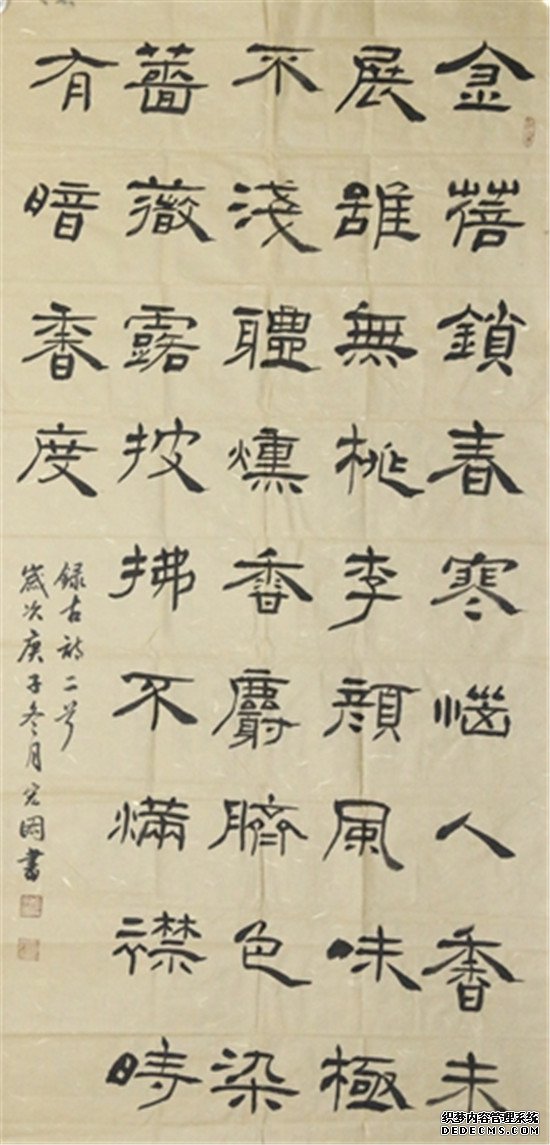 金蓓鎖春寒惱人香未
展雖無桃李顏風味極
不淺體燻香麝臍色染
薔薇露披拂不滿襟時
有暗香度
錄古詩二首
歲次庚子冬月書
织梦内容管理系统
DEDECMS.COM